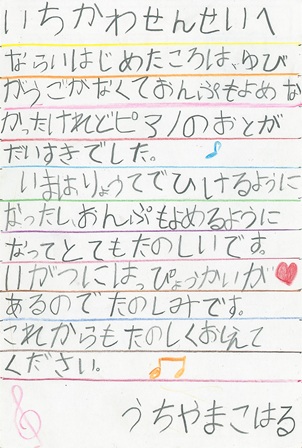 いちかわせんせいへ
ならいはじめたころは、ゆび
がうごかなくておんぷもよめな
かったけれどピアノのおとが
だいすきでした。
いまはりょうてでひけるように
なったし、おんぷもよめるように
なってとてもたのしいです。
11がつにはっぴょうかいが
あるのでたのしみです。
これからもたのしくおしえて
ください。
うちやまこはる